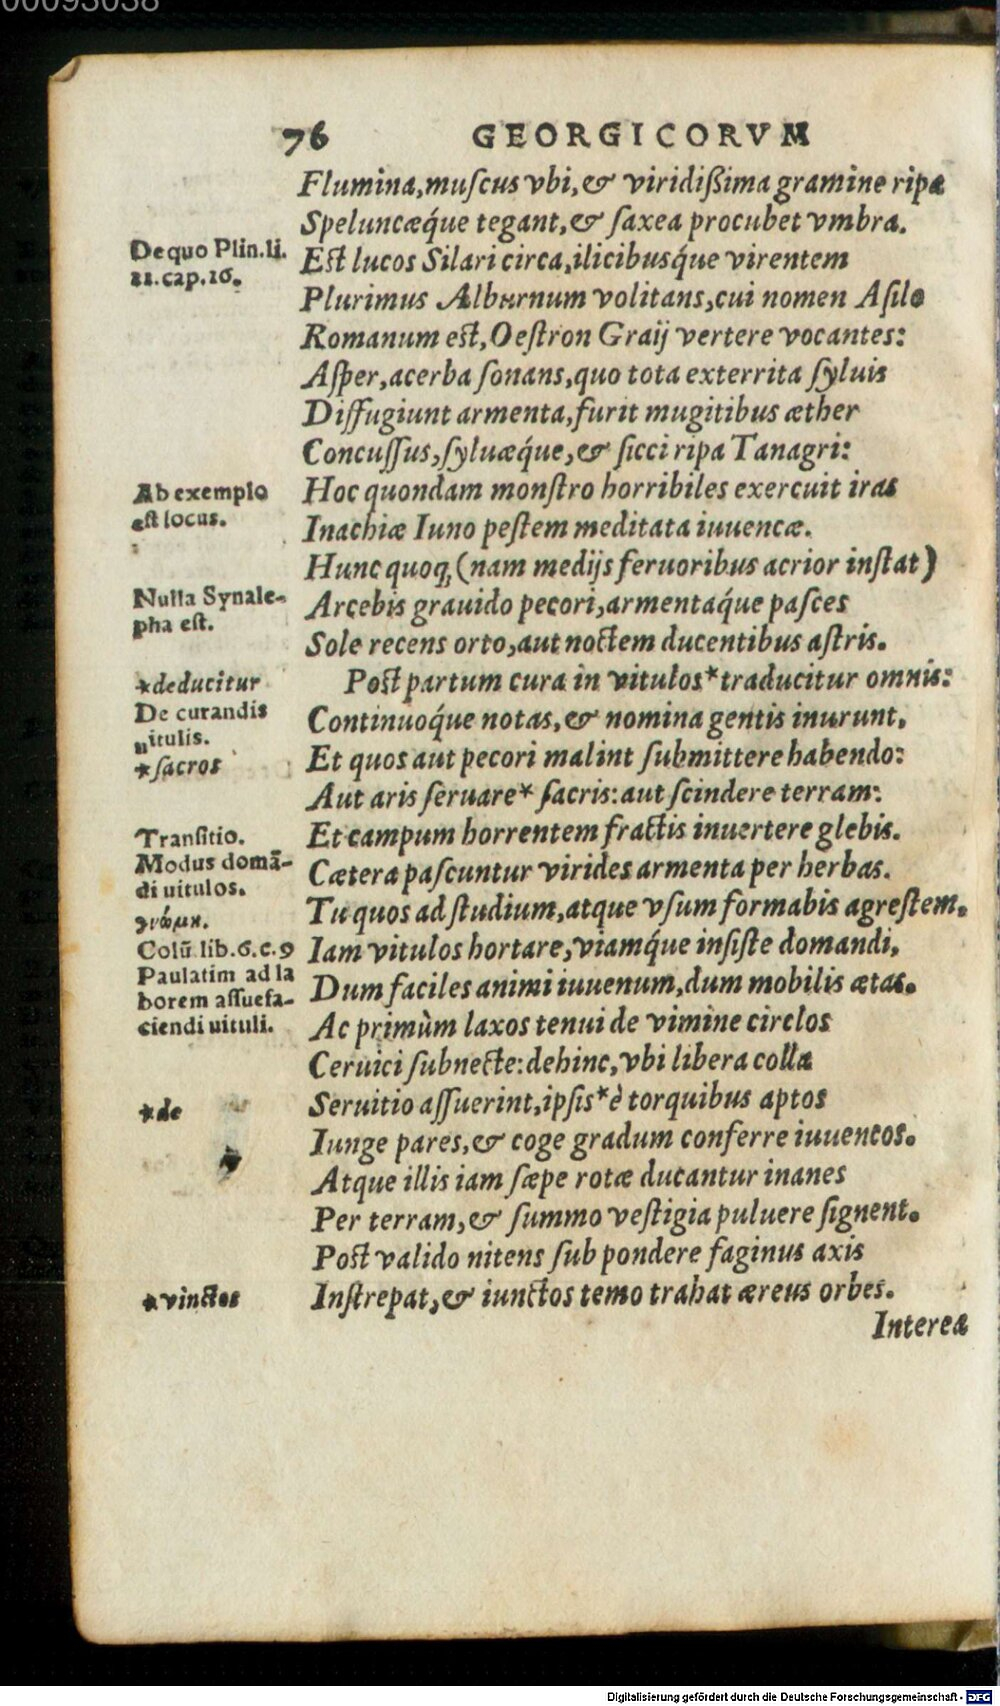 00093038
76 GEORGICORVM
Flumina,muſcus vbi,& viridißima gramine ripa
Speluncæq́ue tegant,& ſaxea procubet vmbra.
De quo Plin.li.
11.cap.16.
Est lucos Silari circa,ilicibusq́ue virentem
Plurimus Alburnum volitans,cui nomen Aſilo
Romanum est,Oeſtron Graij vertere vocantes:
Aſper,acerba ſonans,quo tota exterrita ſyluis
Diffugiunt armenta,furit mugitibus æther
Concuſſus,ſyluæq́ue,& ſicci ripa Tanagri:
Ab exemplo
est locus.
Hoc quondam monſtro horribiles exercuit iras
Inachiæ Iuno peſtem meditata iuuencæ.
Hunc quoq; (nam medijs feruoribus acrior inſtat)
Nulla Synale-
pha est.
Arcebis grauido pecori,armentaq́ue paſces
Sole recens orto,aut noctem ducentibus aſtris.
*deducitur
Post partum cura in vitulos*traducitur omnis:
De curandis
uitulis.
Continuoq́ue notas,& nomina gentis inurunt,
*ſacros
Et quos aut pecori malint ſubmittere habendo:
Aut aris ſeruare* ſacris:aut ſcindere terram:
Tranſitio.
Et campum horrentem fractis inuertere glebis.
Modus domā-
di uitulos.
Cætera paſcuntur virides armenta per herbas.
γνώμη.
Tu quos ad ſtudium,atque vſum formabis agreſtem.
Colū lib.6.c.9
Iam vitulos hortare,viamq́ue inſiſte domandi,
Paulatim ad la
borem aſſuefa-
ciendi uituli.
Dum faciles animi iuuenum,dum mobilis ætas.
Ac primùm laxos tenui de vimine circlos
Ceruici ſubnecte:dehinc,vbi libera colla
*de
Seruitio aſſuerint,ipſis*è torquibus aptos
Iunge pares,& coge gradum conferre iuuencos.
Atque illis iam ſæpe rotæ ducantur inanes
Per terram,& ſummo veſtigia puluere ſignent.
Post valido nitens ſub pondere faginus axis
*vinctos
Inſtrepat,& iunctos temo trahat æreus orbes.
Interea
Digitalisierung gefördert durch die Deutsche Forschungsgemeinschaft - DFG